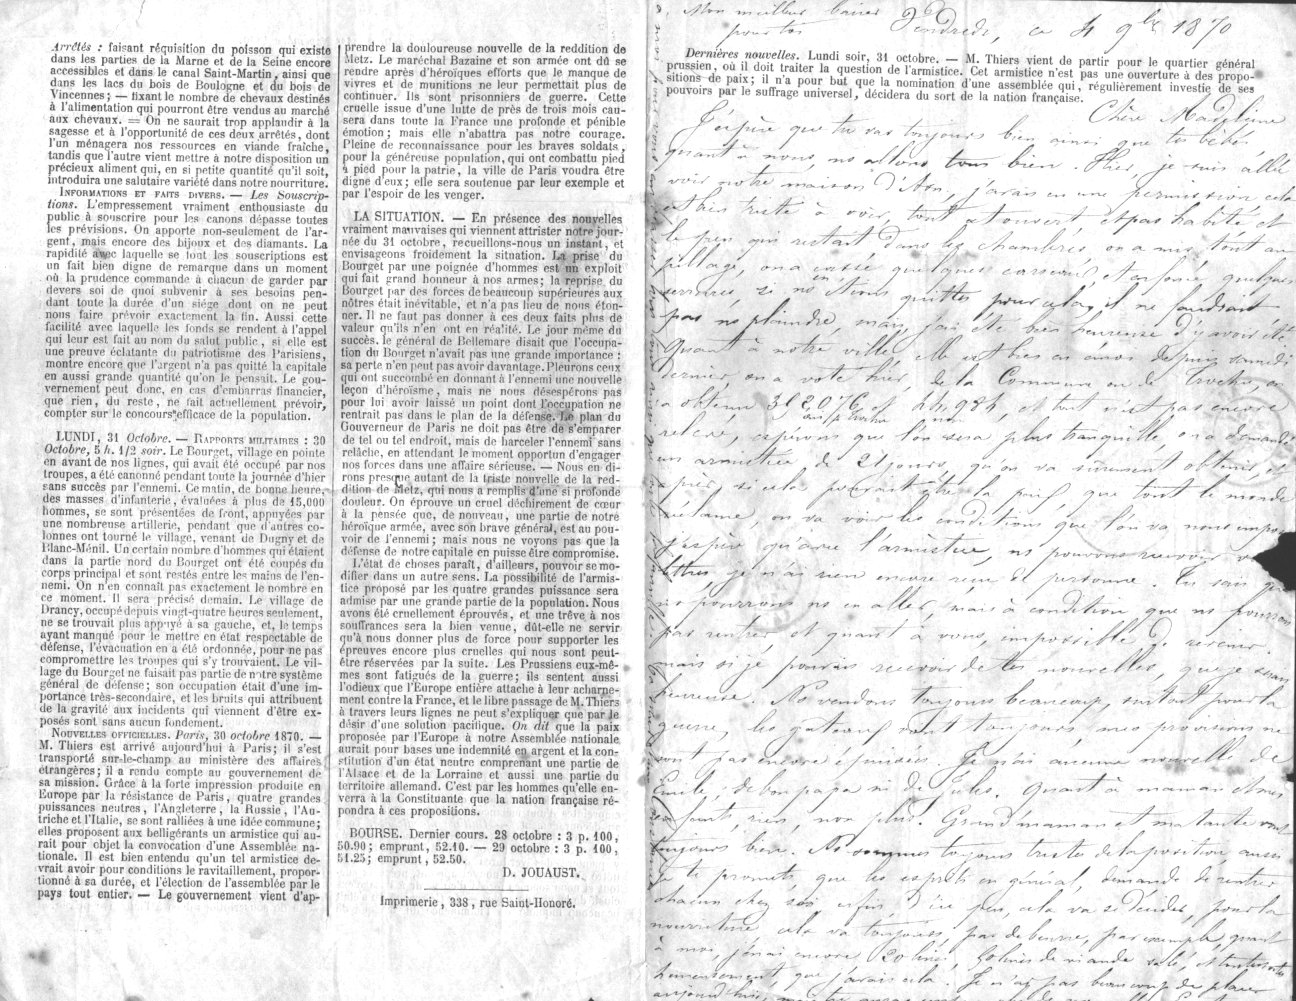 Arrêtés : faisant réquisition du poisson qui existe
dans les parties de la Marne et de la Seine encore
accessibles et dans le canal Saint-Martin, ainsi que
dans les lacs du bois de Boulogne et du bois de
Vincennes; — fixant le nombre de chevaux destinés
à l'alimentation qui pourront être vendus au marché
aux chevaux. = On ne saurait trop applaudir à la
sagesse et à l'opportunité de ces deux arrêtés, dont
l'un ménagera nos ressources en viande fraîche,
tandis que l'autre vient mettre à notre disposition un
précieux aliment qui, en si petite quantité qu'il soit,
introduira une salutaire variété dans notre nourriture.
INFORMATIONS ET FAITS DIVERS. — Les Souscrip-
tions. L'empressement vraiment enthousiaste du
public à souscrire pour les canons dépasse toutes
les prévisions. On apporte non-seulement de l'ar-
gent, mais encore des bijoux et des diamants. La
rapidité avec laquelle se font les souscriptions est
un fait bien digne de remarque dans un moment
où la prudence commande à chacun de garder par
devers soi de quoi subvenir à ses besoins pen-
dant toute la durée d'un siége dont on ne peut
nous faire prévoir exactement la fin. Aussi cette
facilité avec laquelle les fonds se rendent à l'appel
qui leur est fait au nom du salut public, si elle est
une preuve éclatante du patriotisme des Parisiens,
montre encore que l'argent n'a pas quitté la capitale
en aussi grande quantité qu'on le pensait. Le gou-
vernement peut donc, en cas d'embarras financier,
que rien, du reste, ne fait actuellement prévoir,
compter sur le concours efficace de la population.
LUNDI, 31 Octobre. — RAPPORTS MILITAIRES : 30
Octobre, 5 h. 1/2 soir. Le Bourget, village en pointe
en avant de nos lignes, qui avait été occupé par nos
troupes, a été canonné pendant toute la journée d'hier
sans succès par l'ennemi. Ce matin, de bonne heure,
des masses d'infanterie, évaluées à plus de 15,000
hommes, se sont présentées de front, appuyées par
une nombreuse artillerie, pendant que d'autres co-
lonnes ont tourné le village, venant de Dugny et de
Blanc-Ménil. Un certain nombre d'hommes qui étaient
dans la partie nord du Bourget ont été coupés du
corps principal et sont restés entre les mains de l'en-
nemi. On n'en connaît pas exactement le nombre en
ce moment. Il sera précisé demain. Le village de
Drancy, occupé depuis vingt-quatre heures seulement,
ne se trouvait plus appuyé à sa gauche, et, le temps
ayant manqué pour le mettre en état respectable de
défense, l'évacuation en a été ordonnée, pour ne pas
compromettre les troupes qui s'y trouvaient. Le vil-
lage du Bourget ne faisait pas partie de notre système
général de défense; son occupation était d'une im-
portance très-secondaire, et les bruits qui attribuent
de la gravité aux incidents qui viennent d'être ex-
posés sont sans aucun fondement.
NOUVELLES OFFICIELLES. Paris, 30 octobre 1870. —
M. Thiers est arrivé aujourd'hui à Paris; il s'est
transporté sur-le-champ au ministère des affaires
étrangères; il a rendu compte au gouvernement de
sa mission. Grâce à la forte impression produite en
Europe par la résistance de Paris, quatre grandes
puissances neutres, l'Angleterre, la Russie, l'Au-
triche et l'Italie, se sont ralliées à une idée commune;
elles proposent aux belligérants un armistice qui au-
rait pour objet la convocation d'une Assemblée na-
tionale. Il est bien entendu qu'un tel armistice de-
vrait avoir pour conditions le ravitaillement, propor-
tionné à sa durée, et l'élection de l'assemblée par le
pays tout entier. — Le gouvernement vient d'ap-
prendre la douloureuse nouvelle de la reddition de
Metz. Le maréchal Bazaine et son armée ont dû se
rendre après d'héroïques efforts que le manque de
vivres et de munitions ne leur permettait plus de
continuer. Ils sont prisonniers de guerre. Cette
cruelle issue d'une lutte de près de trois mois cau-
sera dans toute la France une profonde et pénible
émotion; mais elle n'abattra pas notre courage.
Pleine de reconnaissance pour les braves soldats,
pour la généreuse population, qui ont combattu pied
à pied pour la patrie, la ville de Paris voudra être
digne d'eux; elle sera soutenue par leur exemple et
par l'espoir de les venger.
LA SITUATION. — En présence des nouvelles
vraiment mauvaises qui viennent attrister notre jour-
née du 31 octobre, recueillons-nous un instant, et
envisageons froidement la situation. La prise du
Bourget par une poignée d'hommes est un exploit
qui fait grand honneur à nos armes; la reprise du
Bourget par des forces de beaucoup supérieures aux
nôtres était inévitable, et n'a pas lieu de nous éton-
ner. Il ne faut pas donner à ces deux faits plus de
valeur qu'ils n'en ont en réalité. Le jour même du
succès, le général de Bellemare disait que l'occupa-
tion du Bourget n'avait pas une grande importance :
sa perte n'en peut pas avoir davantage. Pleurons ceux
qui ont succombé en donnant à l'ennemi une nouvelle
leçon d'héroïsme, mais ne nous désespérons pas
pour lui avoir laissé un point dont l'occupation ne
rentrait pas dans le plan de la défense. Le plan du
Gouverneur de Paris ne doit pas être de s'emparer
de tel ou tel endroit, mais de harceler l'ennemi sans
relâche, en attendant le moment opportun d'engager
nos forces dans une affaire sérieuse. — Nous en di-
rons presque autant de la triste nouvelle de la red-
dition de Metz, qui nous a remplis d'une si profonde
douleur. On éprouve un cruel déchirement de cœur
à la pensée que, de nouveau, une partie de notre
héroïque armée, avec son brave général, est au pou-
voir de l'ennemi; mais nous ne voyons pas que la
défense de notre capitale en puisse être compromise.
L'état de choses paraît, d'ailleurs, pouvoir se mo-
difier dans un autre sens. La possibilité de l'armis-
tice proposé par les quatre grandes puissance sera
admise par une grande partie de la population. Nous
avons été cruellement éprouvés, et une trêve à nos
souffrances sera la bien venue, dût-elle ne servir
qu'à nous donner plus de force pour supporter les
épreuves encore plus cruelles qui nous sont peut-
être réservées par la suite. Les Prussiens eux-mê-
mes sont fatigués de la guerre; ils sentent aussi
l'odieux que l'Europe entière attache à leur acharne-
ment contre la France, et le libre passage de M. Thiers
à travers leurs lignes ne peut s'expliquer que par le
désir d'une solution pacifique. On dit que la paix
proposée par l'Europe à notre Assemblée nationale
aurait pour bases une indemnité en argent et la con-
stitution d'un état neutre comprenant une partie de
l'Alsace et de la Lorraine et aussi une partie du
territoire allemand. C'est par les hommes qu'elle en-
verra à la Constituante que la nation française ré-
pondra à ces propositions.
BOURSE. Dernier cours. 28 octobre : 3 p. 100,
50.90; emprunt, 52.10. — 29 octobre : 3 p. 100,
51.25; emprunt, 52.50.
D. JOUAUST.
Imprimerie, 338, rue Saint-Honoré.
Mon meilleur baiser
pour toi
Vendredi, ce 4 9bre 1870
Dernières nouvelles. Lundi soir, 31 octobre. — M. Thiers vient de partir pour le quartier général
prussien, où il doit traiter la question de l'armistice. Cet armistice n'est pas une ouverture à des propo-
sitions de paix; il n'a pour but que la nomination d'une assemblée qui, régulièrement investie de ses
pouvoirs par le suffrage universel, décidera du sort de la nation française.
Chère Madeleine
J'espère que tu vas toujours bien ainsi que tes bébés
quant à nous, ns allons tous bien. Hier je suis allé
voir notre maison d' j'avais eu une permission cela
est bien triste à voir, tout est ouvert, et pas habité et
le peu qui restait dans les chambres on a mis tout au
pillage, on a cassé quelques carreaux, et enfoncé quelques
serrures si ns étions quittes pour cela, il ne faudrait
pas ns plaindre, mais j'ai été bien heureuse d'y avoir été
Quant à notre ville, elle est bien en émoi depuis samedi
dernier on a voté hier de la Commune ou de Trochu, on
a obtenu oui pr Trochu non tout n'est pas encore
relevé, espérons que l'on sera plus tranquille, on a demandé
un armistice de 21 jours, qu'on va sûrement obtenir, et
après, si cela pouvait être la paix que tout le monde
réclame on va voir les conditions que l'on va nous imposer
j'espère qu'avec l'armistice, ns pouvons recevoir vos
lettres, je n'ai rien encore reçu de personne. Tu sais que
ns pourrons ns en aller, mais à condition que ns pourrons
pas rentrer et quant à vous, impossible de revenir.
mais si je pouvais recevoir de tes nouvelles, que je serais
heureuse. Ns vendons toujours beaucoup, surtout pour la
guerre, les gateaux vont toujours, mes provisions ne
sont pas encore épuisées. Je n'ai aucune nouvelle de
Emile, de bon papa ni de Jules. Quant à maman et mes
rien, non plus. Grand'maman et ma tante vont
toujours bien. Ns sommes toujours tristes de la position, aussi
je te promets que les esprits en général, demande de rentrer
chacun chez soi enfin, d'ici peu, cela va se décider, pour la
nourriture cela va toujours, pas de beurre, par exemple, quant
à moi, j'en ai encore 20 livres, livres de viande salé, et
heureusement que j'avais cela. Je n'ai pas beaucoup de place
aujourd'hui,